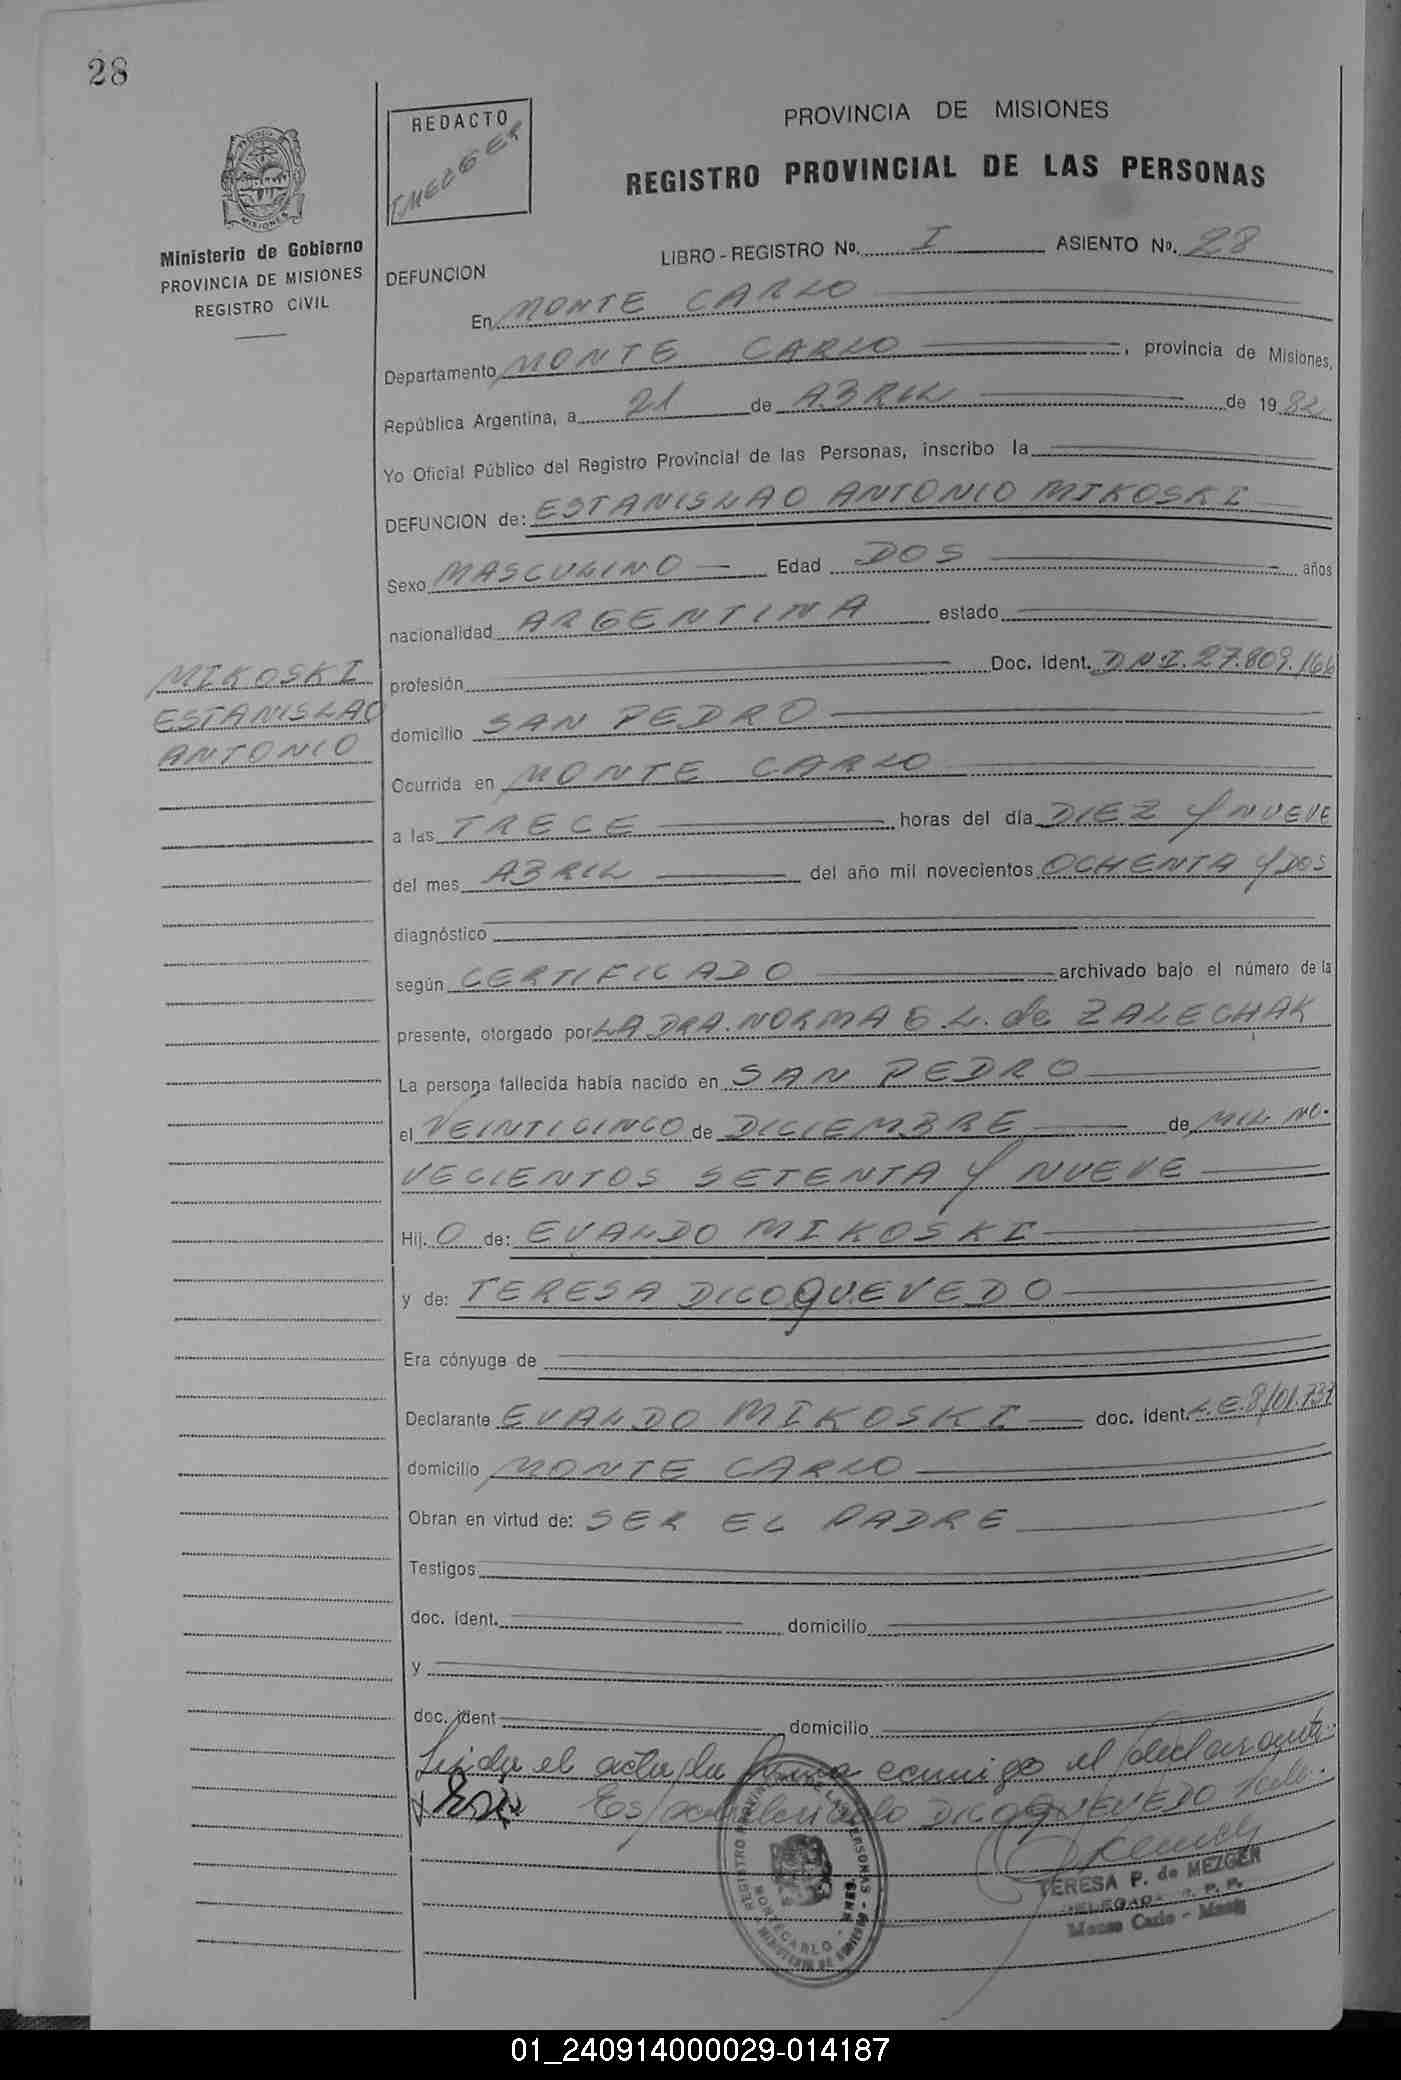 28
REDACTO
T MEZGER
PROVINCIA DE MISIONES
REGISTRO PROVINCIAL DE LAS PERSONAS
Ministerio de Gobierno
PROVINCIA DE MISIONES
REGISTRO CIVIL
LIBRO - REGISTRO Nº. I ASIENTO Nº. 28
DEFUNCION
En MONTE CARLO
Departamento MONTE CARLO, provincia de Misiones,
República Argentina, a 21 de ABRIL de 1982
Yo Oficial Público del Registro Provincial de las Personas, inscribo la
DEFUNCION de: ESTANISLAO ANTONIO MIKOSKI
Sexo MASCULINO Edad DOS años
nacionalidad ARGENTINA estado
MIKOSKI
ESTANISLAO
ANTONIO
profesión Doc. Ident. D.N.I. 27.809.166
domicilio SAN PEDRO
Ocurrida en MONTE CARLO
a las TRECE horas del día DIEZ Y NUEVE
del mes ABRIL del año mil novecientos OCHENTA Y DOS
diagnóstico
según CERTIFICADO archivado bajo el número de la
presente, otorgado por LA DRA. NORMA E L. de ZALECHAK
La persona fallecida había nacido en SAN PEDRO
el VEINTICINCO de DICIEMBRE de MIL NO.
VECIENTOS SETENTA Y NUEVE
Hij. O de: EVALDO MIKOSKI
y de: TERESA DICOQUEVEDO
Era cónyuge de
Declarante EVALDO MIKOSKI doc. ident. L.E. 8/01.737
domicilio MONTE CARLO
Obran en virtud de: SER EL PADRE
Testigos
doc. ident. domicilio
y
doc. ident domicilio
Leida el acta la firma conmigo el declarante.
DICOQUEVEDO Vale.
REGISTRO PROVINCIAL DE LAS PERSONAS
MONTECARLO
TERESA P. de MEZGER
DELEGADA R. P. P.
Monte Carlo - Mnes
01_240914000029-014187